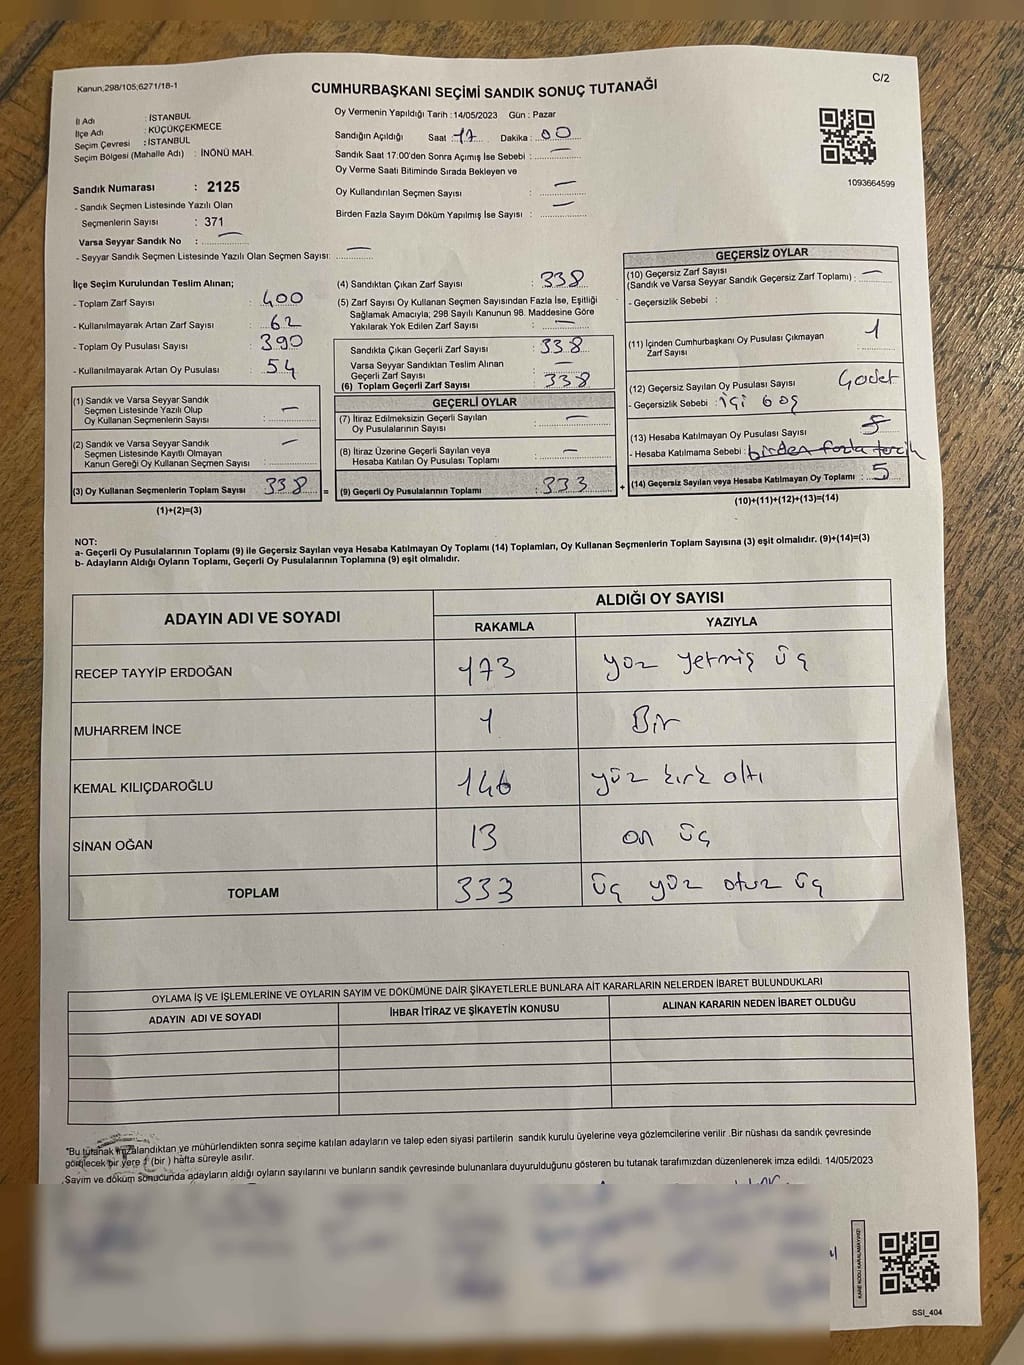 Kanun,298/105;6271/18-1
C/2
CUMHURBAŞKANI SEÇİMİ SANDIK SONUÇ TUTANAĞI
İl Adı : İSTANBUL
İlçe Adı : KÜÇÜKÇEKMECE
Seçim Çevresi : İSTANBUL
Seçim Bölgesi (Mahalle Adı) : İNÖNÜ MAH.
Sandık Numarası : 2125
- Sandık Seçmen Listesinde Yazılı Olan
Seçmenlerin Sayısı : 371
Varsa Seyyar Sandık No : —
- Seyyar Sandık Seçmen Listesinde Yazılı Olan Seçmen Sayısı: —
Oy Vermenin Yapıldığı Tarih :14/05/2023 Gün : Pazar
Sandığın Açıldığı Saat 17 Dakika : 00
Sandık Saat 17:00'den Sonra Açımış İse Sebebi : —
Oy Verme Saati Bitiminde Sırada Bekleyen ve
Oy Kullandırılan Seçmen Sayısı : —
Birden Fazla Sayım Döküm Yapılmış İse Sayısı : —
1093664599
İlçe Seçim Kurulundan Teslim Alınan;
- Toplam Zarf Sayısı : 400
- Kullanılmayarak Artan Zarf Sayısı : 62
- Toplam Oy Pusulası Sayısı : 390
- Kullanılmayarak Artan Oy Pusulası : 54
(1) Sandık ve Varsa Seyyar Sandık
Seçmen Listesinde Yazılı Olup
Oy Kullanan Seçmenlerin Sayısı : —
(2) Sandık ve Varsa Seyyar Sandık
Seçmen Listesinde Kayıtlı Olmayan
Kanun Gereği Oy Kullanan Seçmen Sayısı : —
(3) Oy Kullanan Seçmenlerin Toplam Sayısı : 338 =
(1)+(2)=(3)
(4) Sandıktan Çıkan Zarf Sayısı : 338
(5) Zarf Sayısı Oy Kullanan Seçmen Sayısından Fazla İse, Eşitliği
Sağlamak Amacıyla; 298 Sayılı Kanunun 98. Maddesine Göre
Yakılarak Yok Edilen Zarf Sayısı : —
Sandıkta Çıkan Geçerli Zarf Sayısı : 338
Varsa Seyyar Sandıktan Teslim Alınan
Geçerli Zarf Sayısı : —
(6) Toplam Geçerli Zarf Sayısı : 338
GEÇERLİ OYLAR
(7) İtiraz Edilmeksizin Geçerli Sayılan
Oy Pusulalarının Sayısı : —
(8) İtiraz Üzerine Geçerli Sayılan veya
Hesaba Katılan Oy Pusulası Toplamı : —
(9) Geçerli Oy Pusulalarının Toplamı : 333 +
GEÇERSİZ OYLAR
(10) Geçersiz Zarf Sayısı
(Sandık ve Varsa Seyyar Sandık Geçersiz Zarf Toplamı) : —
- Geçersizlik Sebebi :
(11) İçinden Cumhurbaşkanı Oy Pusulası Çıkmayan
Zarf Sayısı : 1
(12) Geçersiz Sayılan Oy Pusulası Sayısı 4 adet
- Geçersizlik Sebebi : içi boş
(13) Hesaba Katılmayan Oy Pusulası Sayısı 5
- Hesaba Katılmama Sebebi : birden fazla tercih
(14) Geçersiz Sayılan veya Hesaba Katılmayan Oy Toplamı : 5
(10)+(11)+(12)+(13)=(14)
NOT:
a- Geçerli Oy Pusulalarının Toplamı (9) ile Geçersiz Sayılan veya Hesaba Katılmayan Oy Toplamı (14) Toplamları, Oy Kullanan Seçmenlerin Toplam Sayısına (3) eşit olmalıdır. (9)+(14)=(3)
b- Adayların Aldığı Oyların Toplamı, Geçerli Oy Pusulalarının Toplamına (9) eşit olmalıdır.
ADAYIN ADI VE SOYADI
ALDIĞI OY SAYISI
RAKAMLA
YAZIYLA
RECEP TAYYİP ERDOĞAN 173 yüz yetmiş üç
MUHARREM İNCE 1 Bir
KEMAL KILIÇDAROĞLU 146 yüz kırk altı
SİNAN OĞAN 13 on üç
TOPLAM 333 üç yüz otuz üç
OYLAMA İŞ VE İŞLEMLERİNE VE OYLARIN SAYIM VE DÖKÜMÜNE DAİR ŞİKAYETLERLE BUNLARA AİT KARARLARIN NELERDEN İBARET BULUNDUKLARI
ADAYIN ADI VE SOYADI
İHBAR İTİRAZ VE ŞİKAYETİN KONUSU
ALINAN KARARIN NEDEN İBARET OLDUĞU
"Bu tutanak imzalandıktan ve mühürlendikten sonra seçime katılan adayların ve talep eden siyasi partilerin sandık kurulu üyelerine veya gözlemcilerine verilir .Bir nüshası da sandık çevresinde
görülecek bir yere 1 (bir ) hafta süreyle asılır.
Sayım ve döküm sonucunda adayların aldığı oyların sayılarını ve bunların sandık çevresinde bulunanlara duyurulduğunu gösteren bu tutanak tarafımızdan düzenlenerek imza edildi. 14/05/2023
KARE KODU KARALAMAYINIZ!
SSI_404